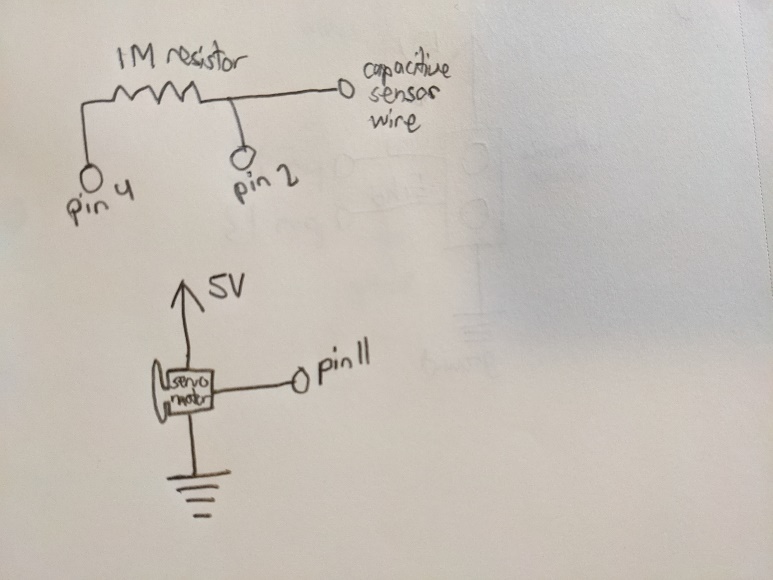 1M resistor
capacitive
sensor
wire
pin 4
pin 2
5V
servo
motor
pin 11